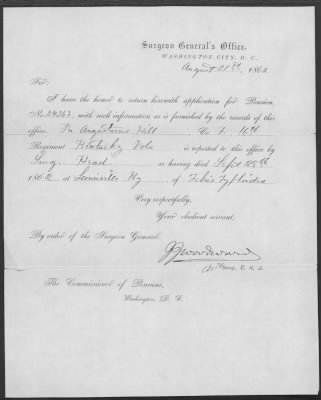 Surgeon General's Office,
WASHINGTON CITY, D. C.
August 21st, 186
Sir:
I have the honor to return herewith application for Pension,
No. 24363, with such information as is furnished by the records of this
office. Augustine Co. F. 16th
Regiment Kentucky Vols is reported to this office by
Surg. Head as having died Sept 28th
1862 at Louisville Ky of Febris Typhoides
Very respectfully,
Your obedient servant,
By order of the Surgeon General:
JJWoodward
Asst Surg. U.S.A.
The Commissioner of Pensions,
Washington, D. C.